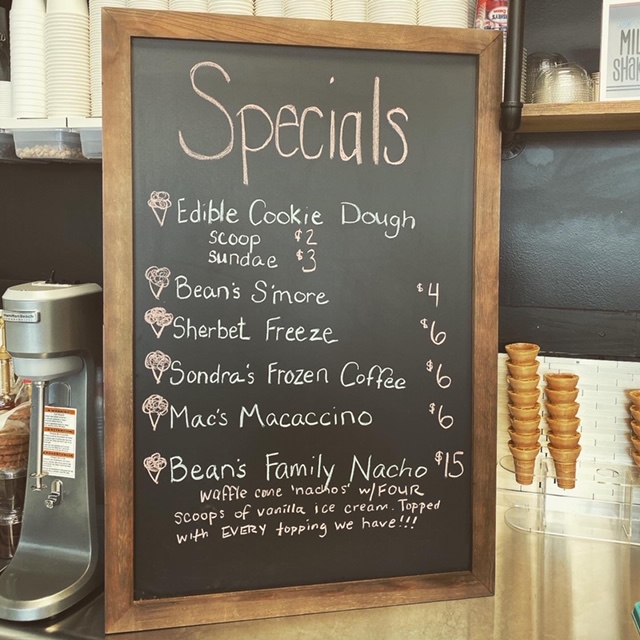 Specials
Edible Cookie Dough
scoop $2
sundae $3
Bean's S'more $4
Sherbet Freeze $6
Sondra's Frozen Coffee $6
Mac's Macaccino $6
Bean's Family Nacho $15
Waffle cone 'nachos' w/FOUR
scoops of vanilla ice cream. Topped
with EVERY topping we have!!!
MIL
SHAK